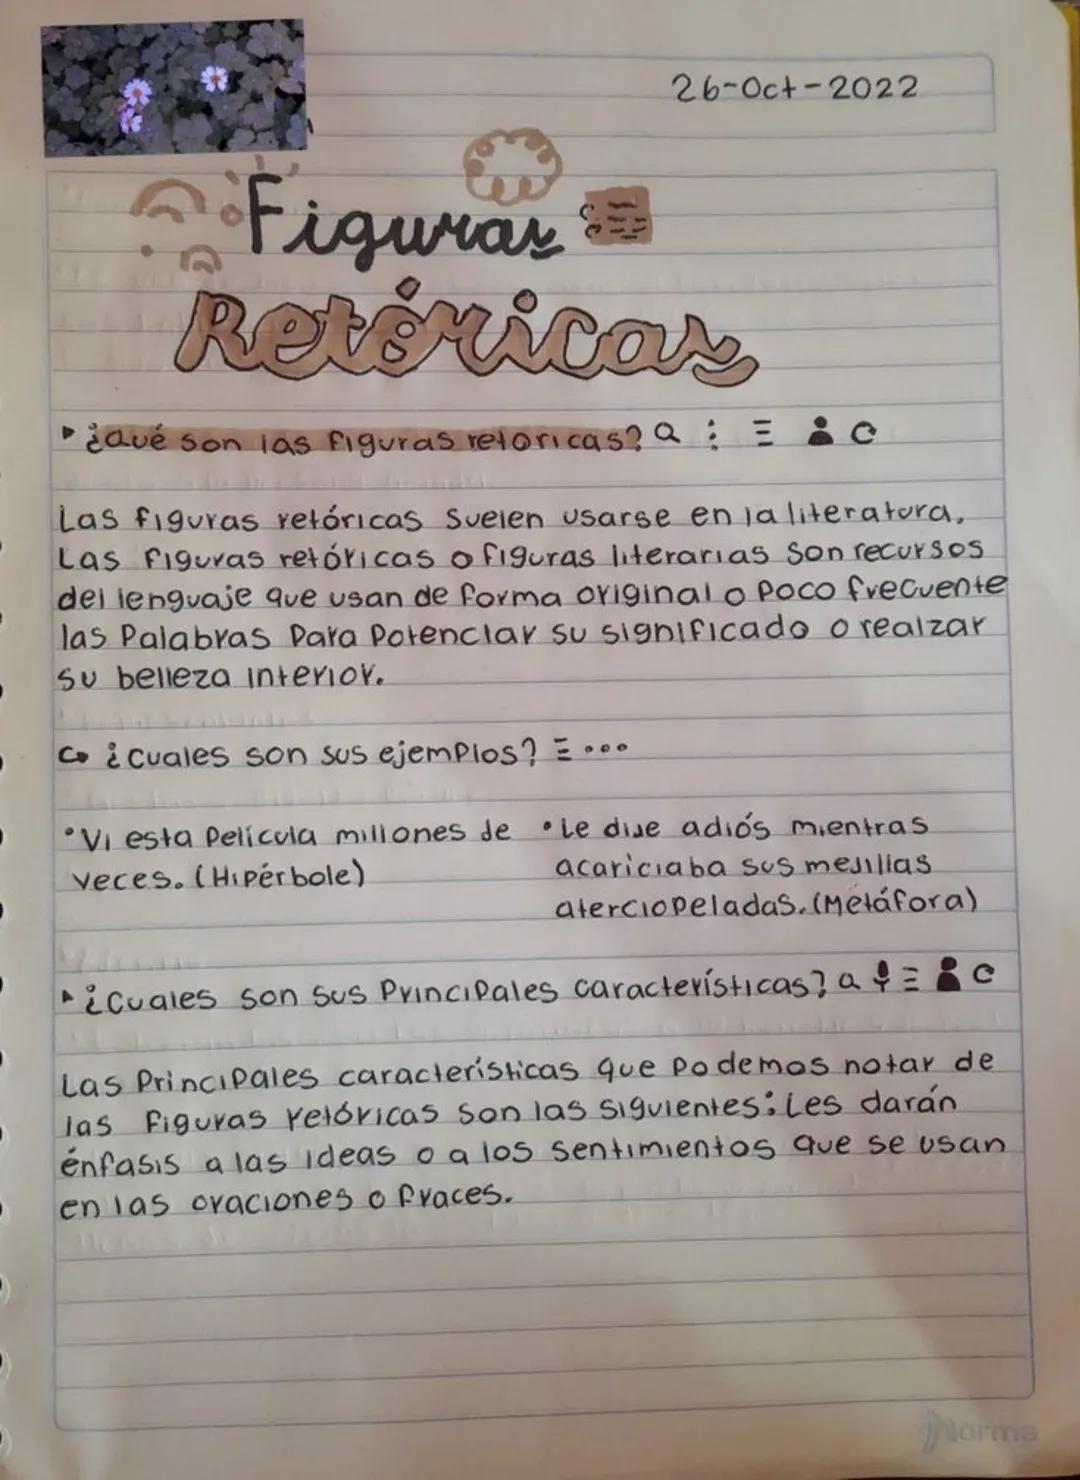 26-Oct-2022
Figuras
Retóricas
¿Qué son las figuras retoricas?
Las figuras retóricas suelen usarse en la literatura.
Las figuras retóricas o figuras literarias son recursos
del lenguaje que usan de forma original o poco frecuente
las palabras para potenciar su significado o realzar
su belleza interior.
¿Cuales son sus ejemplos?
• Vi esta película millones de
veces. (Hipérbole)
• Le dije adiós mientras
acariciaba sus mejillas
aterciopeladas. (Metáfora)
¿Cuales son sus principales características?
Las principales características que podemos notar de
las figuras retóricas son las siguientes: Les darán
énfasis a las ideas o a los sentimientos que se usan
en las oraciones o fraces.
Norma